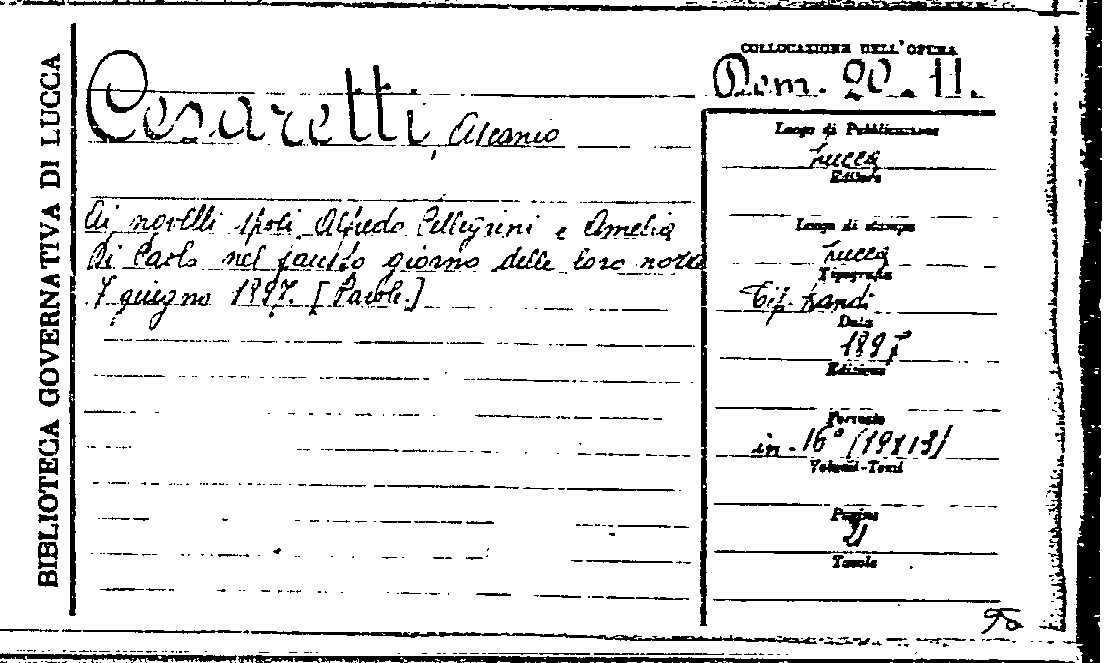 BIBLIOTECA GOVERNATIVA DI LUCCA
Cesaretti, Ascanio
Ai novelli sposi Alfredo Pellegrini e Amelia
Di Paolo nel fausto giorno delle loro nozze
7 giugno 1897. [Parole.]
COLLOCAZIONE DELL'OPERA
Dom. 20.11.
Luogo di Pubblicazione
Lucca
Editore
Luogo di stampa
Lucca
Tipografia
Tip. Landi
Data
1897
Edizione
Formato
in-16° (19x13)
Volumi-Tomi
Pagine
Tavole